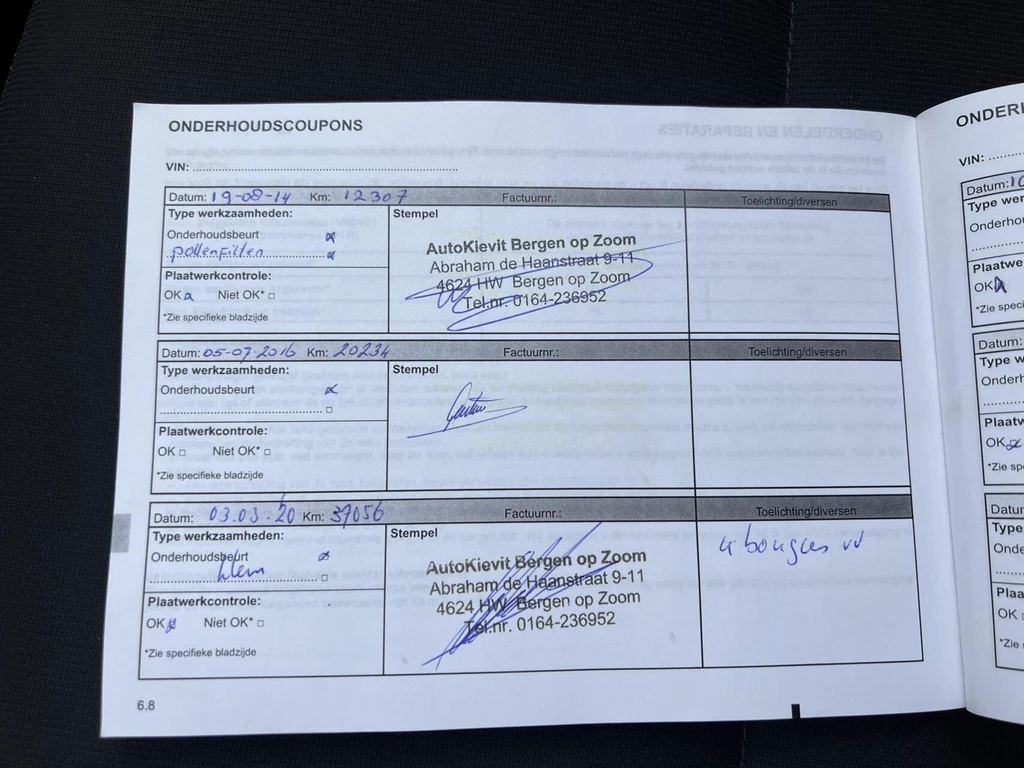 ONDERHOUDSCOUPONS
VIN:
Datum: 19-08-14 Km: 12307 Factuurnr.: Toelichting/diversen
Type werkzaamheden: Stempel
Onderhoudsbeurt
pollenfilter
Plaatwerkcontrole:
OK Niet OK*
*Zie specifieke bladzijde
AutoKievit Bergen op Zoom
Abraham de Haanstraat 9-11
4624 HW Bergen op Zoom
Tel.nr. 0164-236952
Datum: 05-07-2016 Km: 20234 Factuurnr.: Toelichting/diversen
Type werkzaamheden: Stempel
Onderhoudsbeurt
Plaatwerkcontrole:
OK Niet OK*
*Zie specifieke bladzijde
Datum: 03.03.20 Km: 37056 Factuurnr.: Toelichting/diversen
Type werkzaamheden: Stempel
Onderhoudsbeurt
klein
Plaatwerkcontrole:
OK Niet OK*
*Zie specifieke bladzijde
AutoKievit Bergen op Zoom
Abraham de Haanstraat 9-11
4624 HW Bergen op Zoom
Tel.nr. 0164-236952
4 bougies vv
6.8
ONDERH
VIN:
Datum: 10
Type wer
Onderho
Plaatwe
OK
*Zie speci
Datum:
Type w
Onderh
Plaatw
OK
*Zie sp
Datur
Type
Onde
Plaa
OK
*Zie